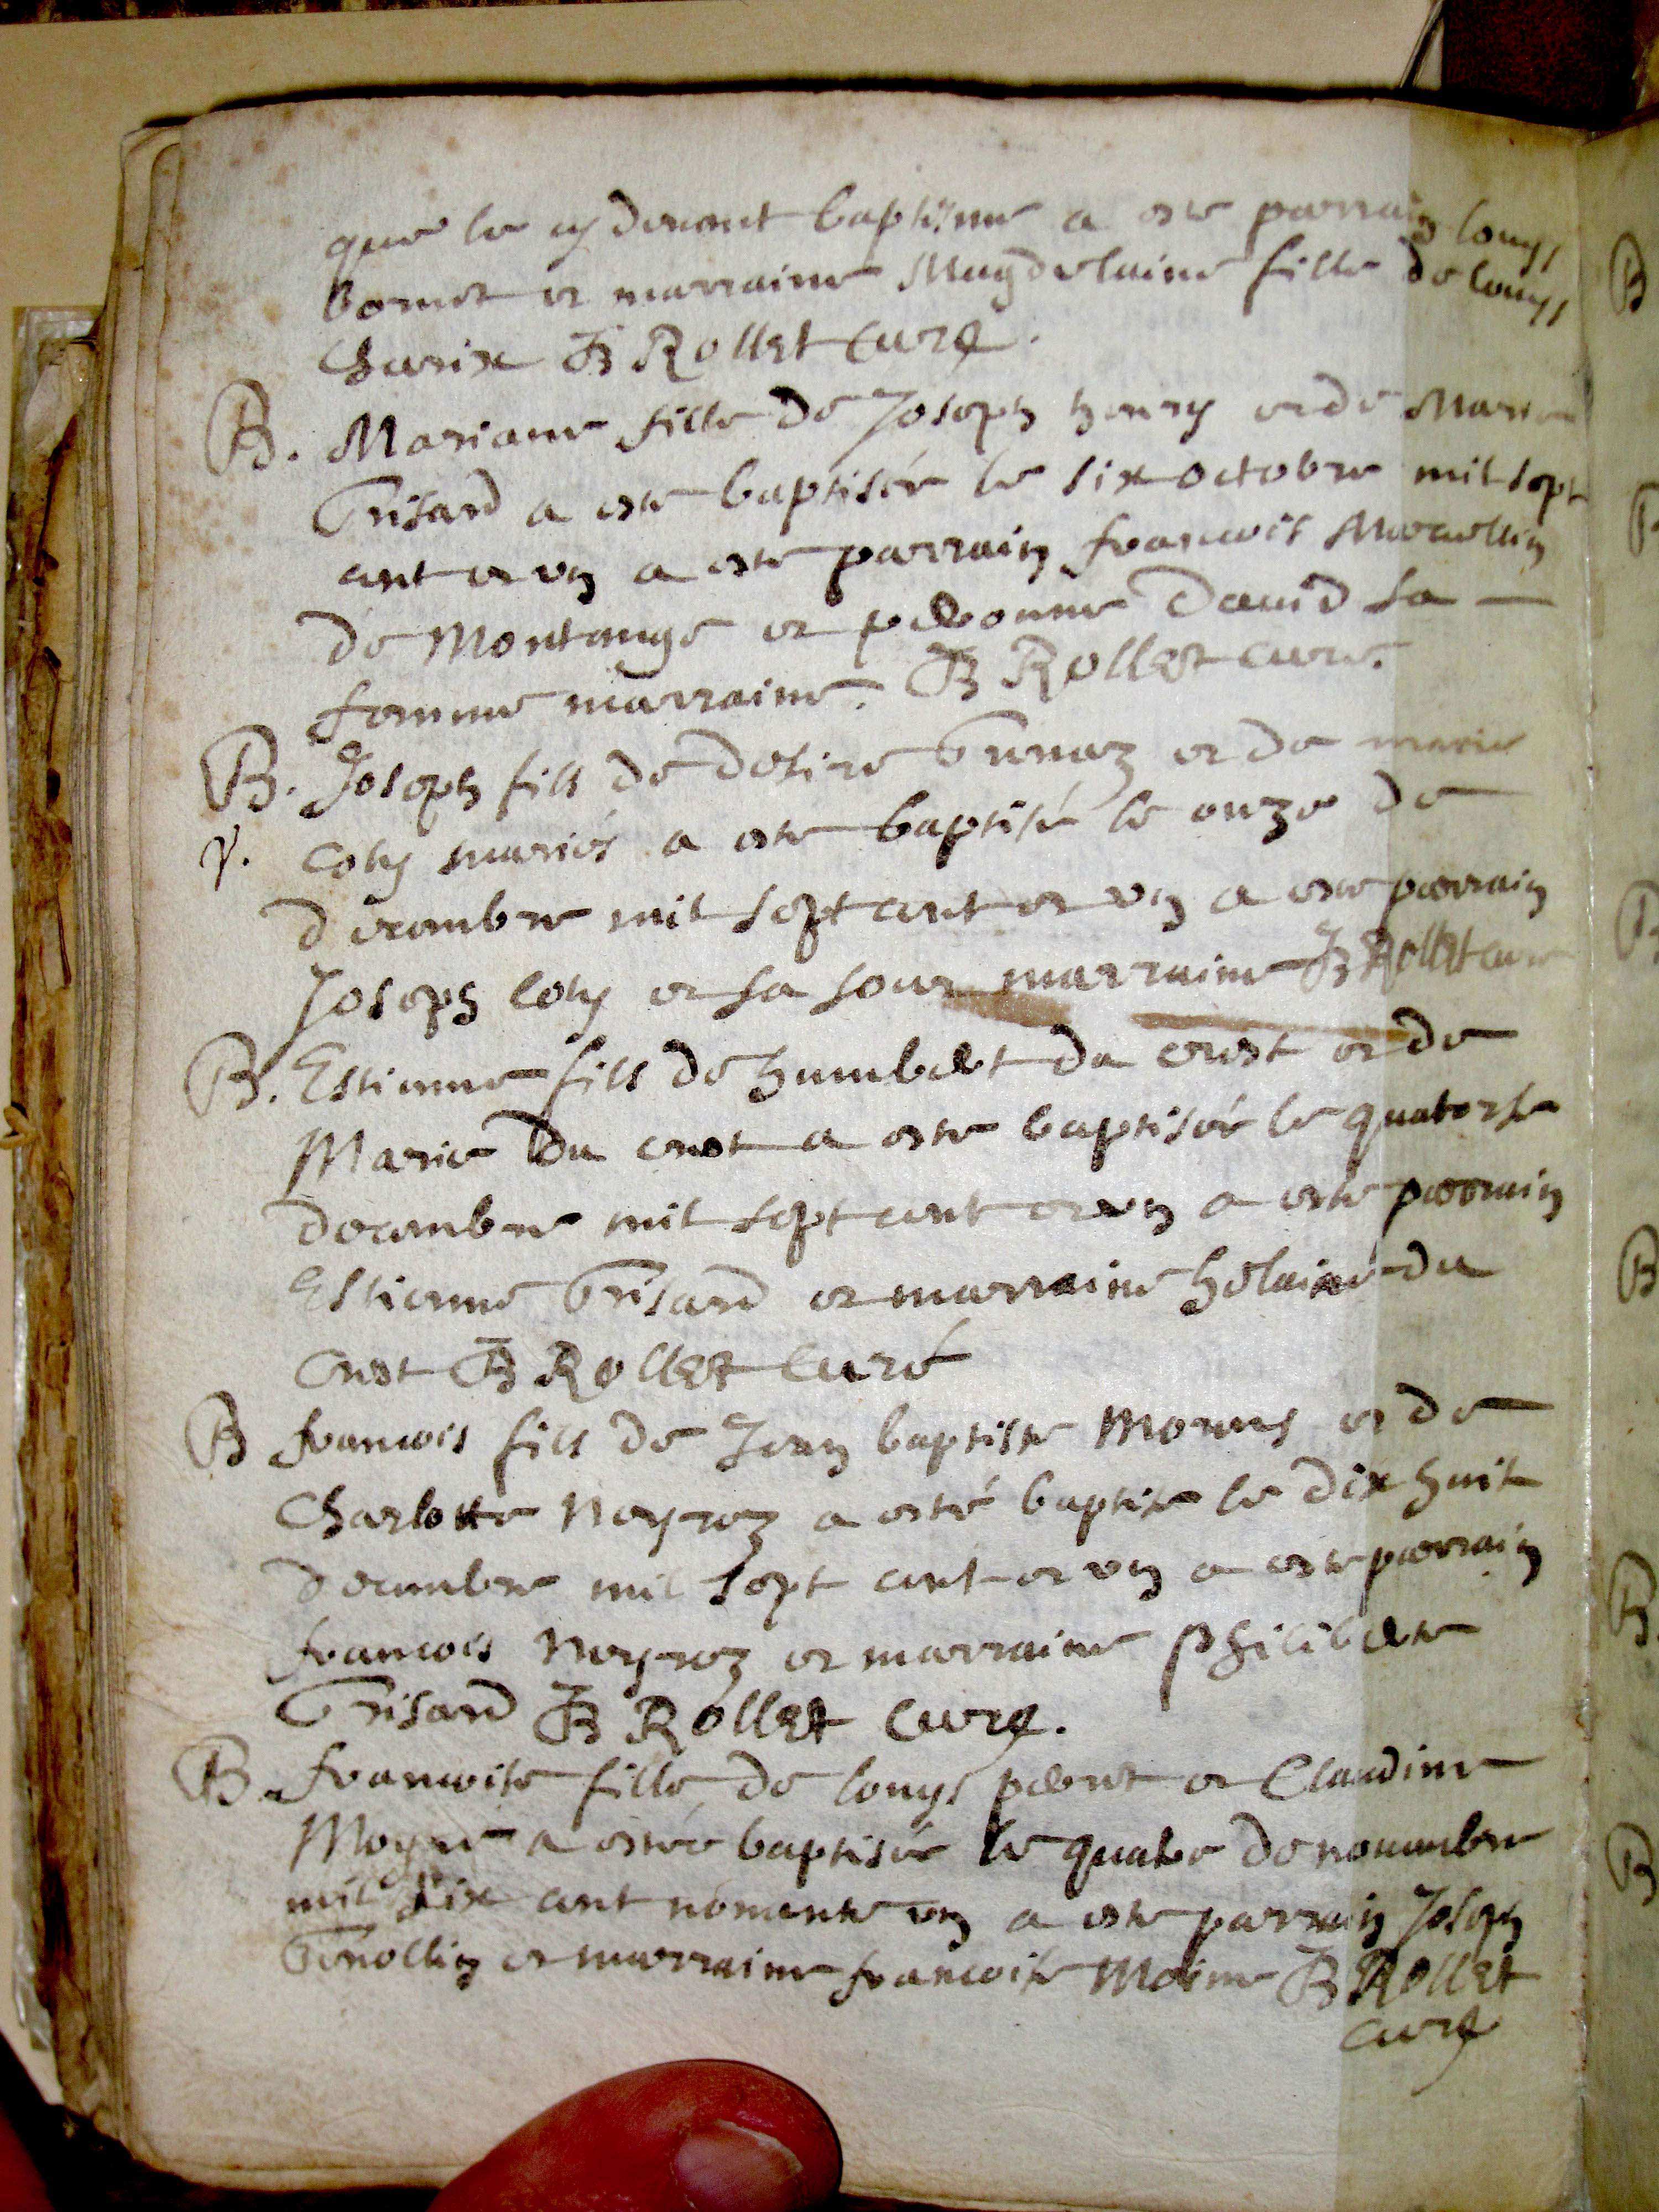 que le cy devant baptisme a este parrain louys
bornet et marraine Magdelaine fille de louys
Charix JB Rollet Curé.
B. Mariane fille de Joseph henry et de Marie
Grisard a este baptisée le six octobre mil sept
cent et un a este parrain francois
de Montange et peronne David sa
femme marraine. JB Rollet curé.
B. Joseph fils de desire et de marie
coly mariés a este baptisé le onze de
decembre mil sept cent et un a este parrain
Joseph coly et sa sour marraine JB Rollet curé
B. Estienne fils de humbert du crest et de
Marie Du crest a este baptisée le quatorse
decembre mil sept cent et un a este parrain
Estienne Grisard et marraine helaine du
Crest JB Rollet Curé
B francois fils de Jean baptiste et de
Charlotte Neyroz a esté baptise le dix huit
decembre mil sept cent et un a este parrain
francois Neyroz et marraine philiberte
Grisard JB Rollet Curé.
B. francoise fille de louys pernet et Claudine
Moyne a estée baptisée le quatre de nouembre
mil six cent nonante un a este parrain Joseph
et marraine francoise Moine JB Rollet
curé
B
B
B
B
B